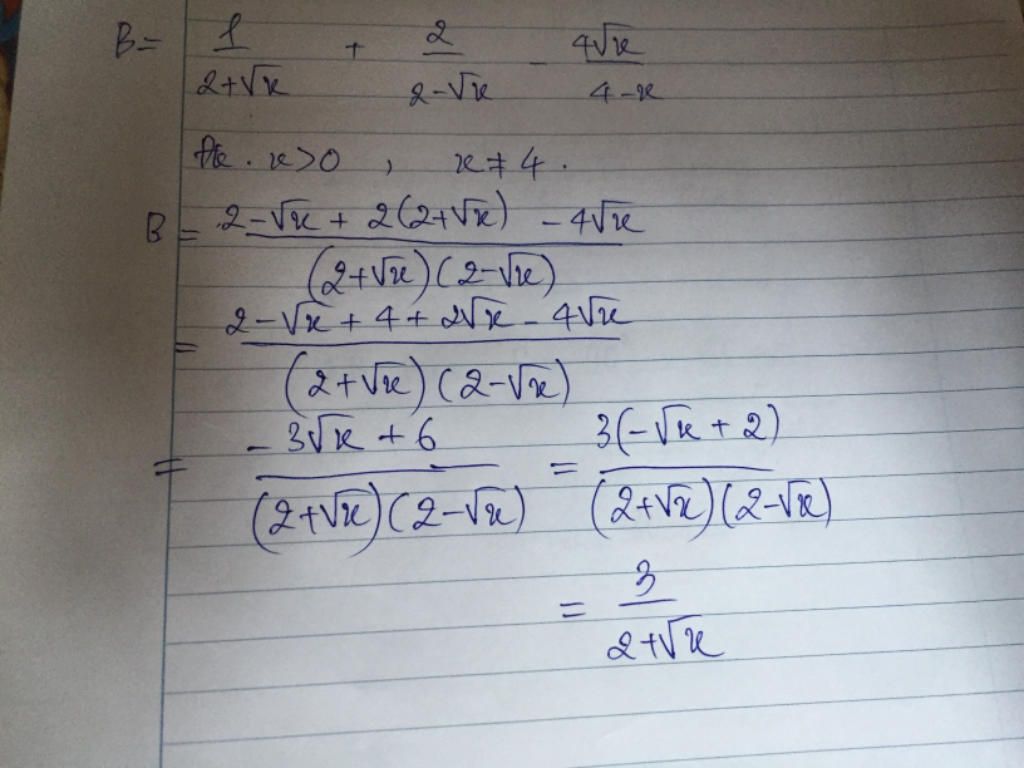 B = 1/(2+√x) + 2/(2-√x) - 4√x/(4-x)
Đk. x>0, x≠4.
B = (2-√x + 2(2+√x) - 4√x)/((2+√x)(2-√x))
= (2-√x + 4 + 2√x - 4√x)/((2+√x)(2-√x))
= (-3√x + 6)/((2+√x)(2-√x)) = 3(-√x + 2)/((2+√x)(2-√x))
= 3/(2+√x)